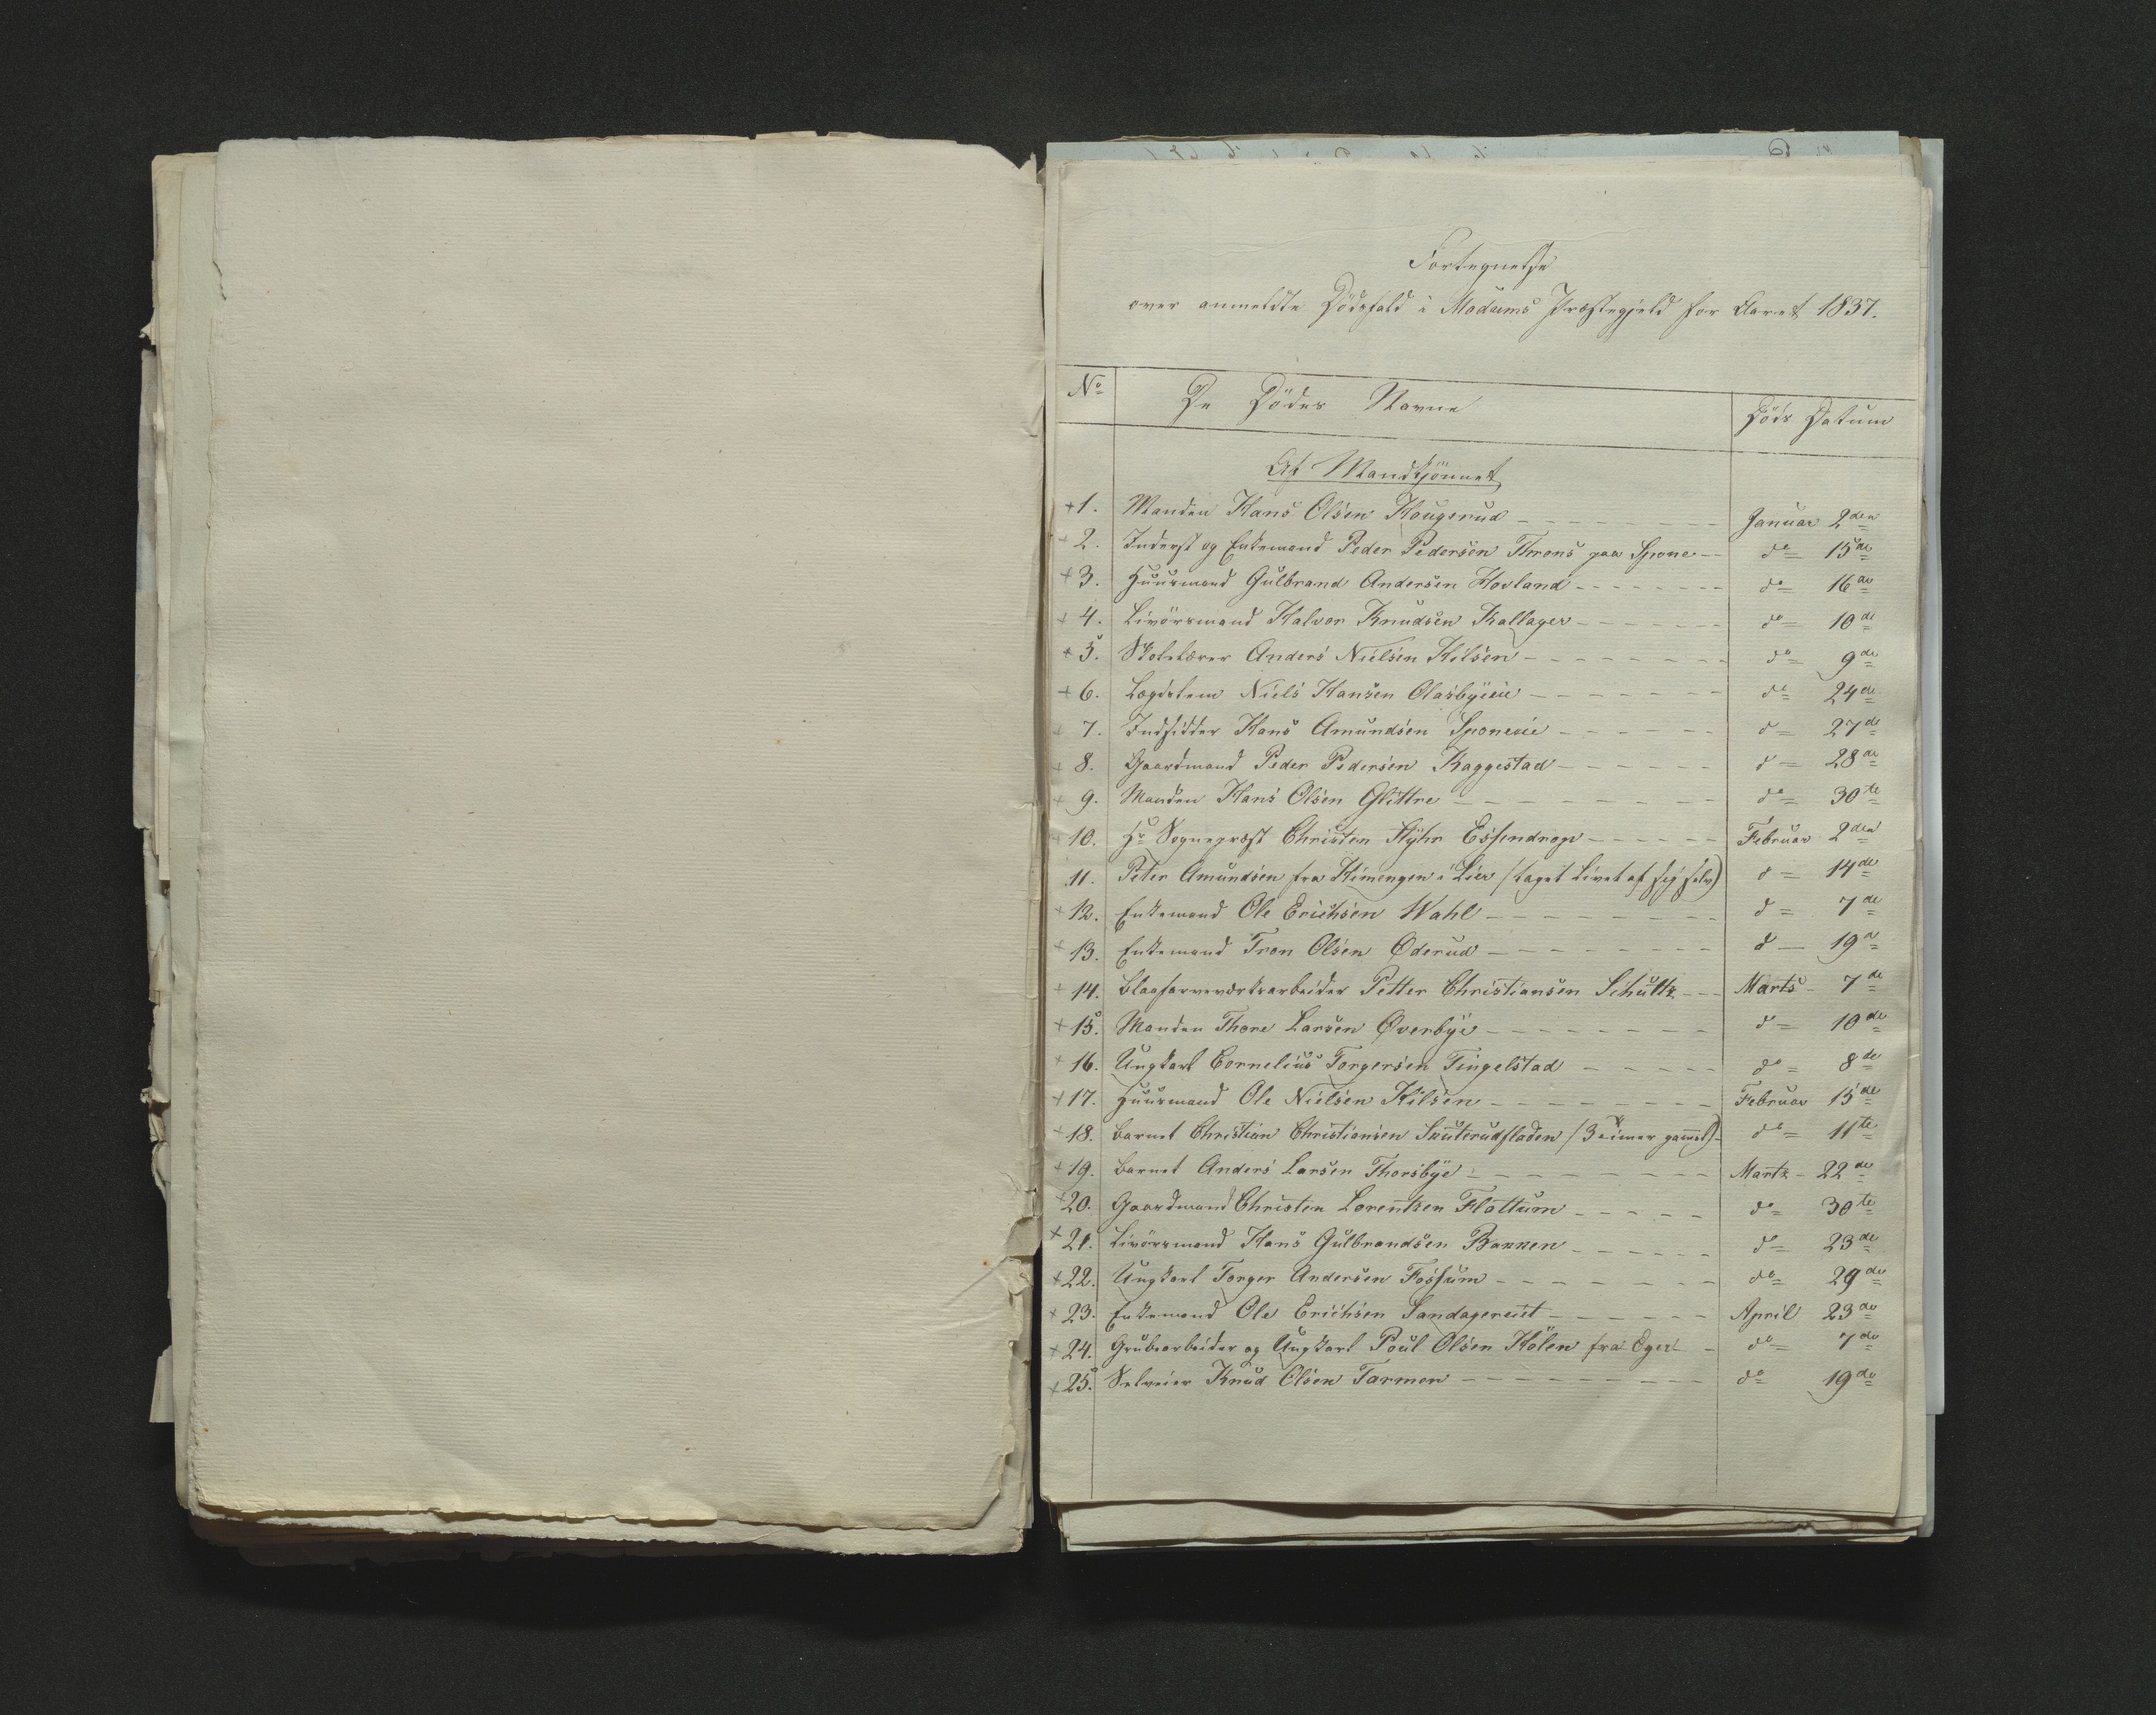 Fortegnelse
over anmeldte Dödsfald i Modums Præstegjeld for Aaret 1837.
No De Dödes Navne Döds Datum
Af Mandkjönnet
+1. Manden Hans Olsen Hougerud Januar 2den
+2. Inderst og Enkemand Peder Pedersen Throns paa Spone do 15de
+3. Huusmand Gulbrand Andersen Hovland do 16de
+4. Livörsmand Halvor Knudsen Kallager do 10de
+5. Skolelærer Anders Nielsen Hilsen do 9de
+6. Lægdslem Niels Hansen Olasbyeie do 24de
+7. Indsidder Hans Amundsen Sponeeie d 27de
+8. Gaardmand Peder Pedersen Kaggestad d 28de
+9. Manden Hans Olsen Glittre do 30te
+10. Hr Sognepræst Christen Støhr Essendrop Februar 2den
11. Peter Amundsen fra Himengen i Lier (taget Livet af sig selv) d 14de
+12. Enkemand Ole Erichsen Wahl d 7de
+13. Enkemand Tron Olsen Øderud d 19de
+14. Blaafarveværksarbeider Petter Christiansen Schultz Marts 7de
+15. Manden Thore Larsen Øverbye d 10de
+16. Ungkarl Cornelius Torgersen Tingelstad do 8de
+17. Huusmand Ole Nielsen Hilsen Februar 15de
+18. Barnet Christian Christiansen Skuterudfladen (3 timer gamel) do 11te
+19. Barnet Anders Larsen Thorsbye Martz 22de
+20. Gaardmand Christen Lorentzen Flattum do 30te
+21. Livörsmand Hans Gulbrandsen Bakken do 23de
+22. Ungkarl Torger Andersen Fossum do 29de
+23. Enkemand Ole Erichsen Sandagereiet April 23de
+24. Grubearbeider og Ungkarl Poul Olsen Holen fra Eger do 7de
+25. Selveier Knud Olsen Tarmon do 19de